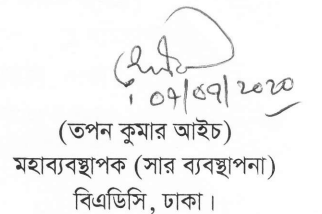 ০৭/০৭/২০২০
(তপন কুমার আইচ)
মহাব্যবস্থাপক (সার ব্যবস্থাপনা)
বিএডিসি, ঢাকা।